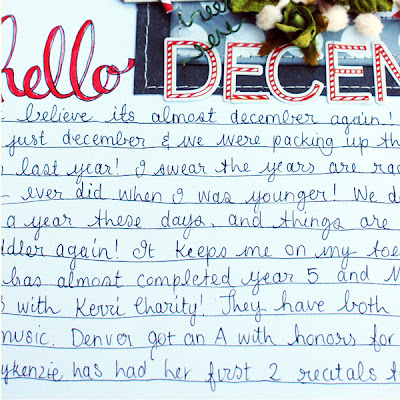 hello
DECEM
believe its almost december again!
just december & we were packing up th
last year! I swear the years are ra
ever did when I was younger! We d
a year these days, and things are
ddler again! It keeps me on my toe
has almost completed year 5 and M
with Kerri Charity! They have both
music. Denver got an A with honors for
ykenzie has had her first 2 recitals t